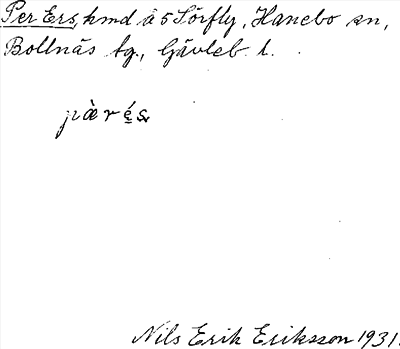 Per Ers, hmd å 5 Sörfly, Hanebo sn,
Bollnäs tg., Gävleb. l.
pàrés
Nils Erik Eriksson 1931.